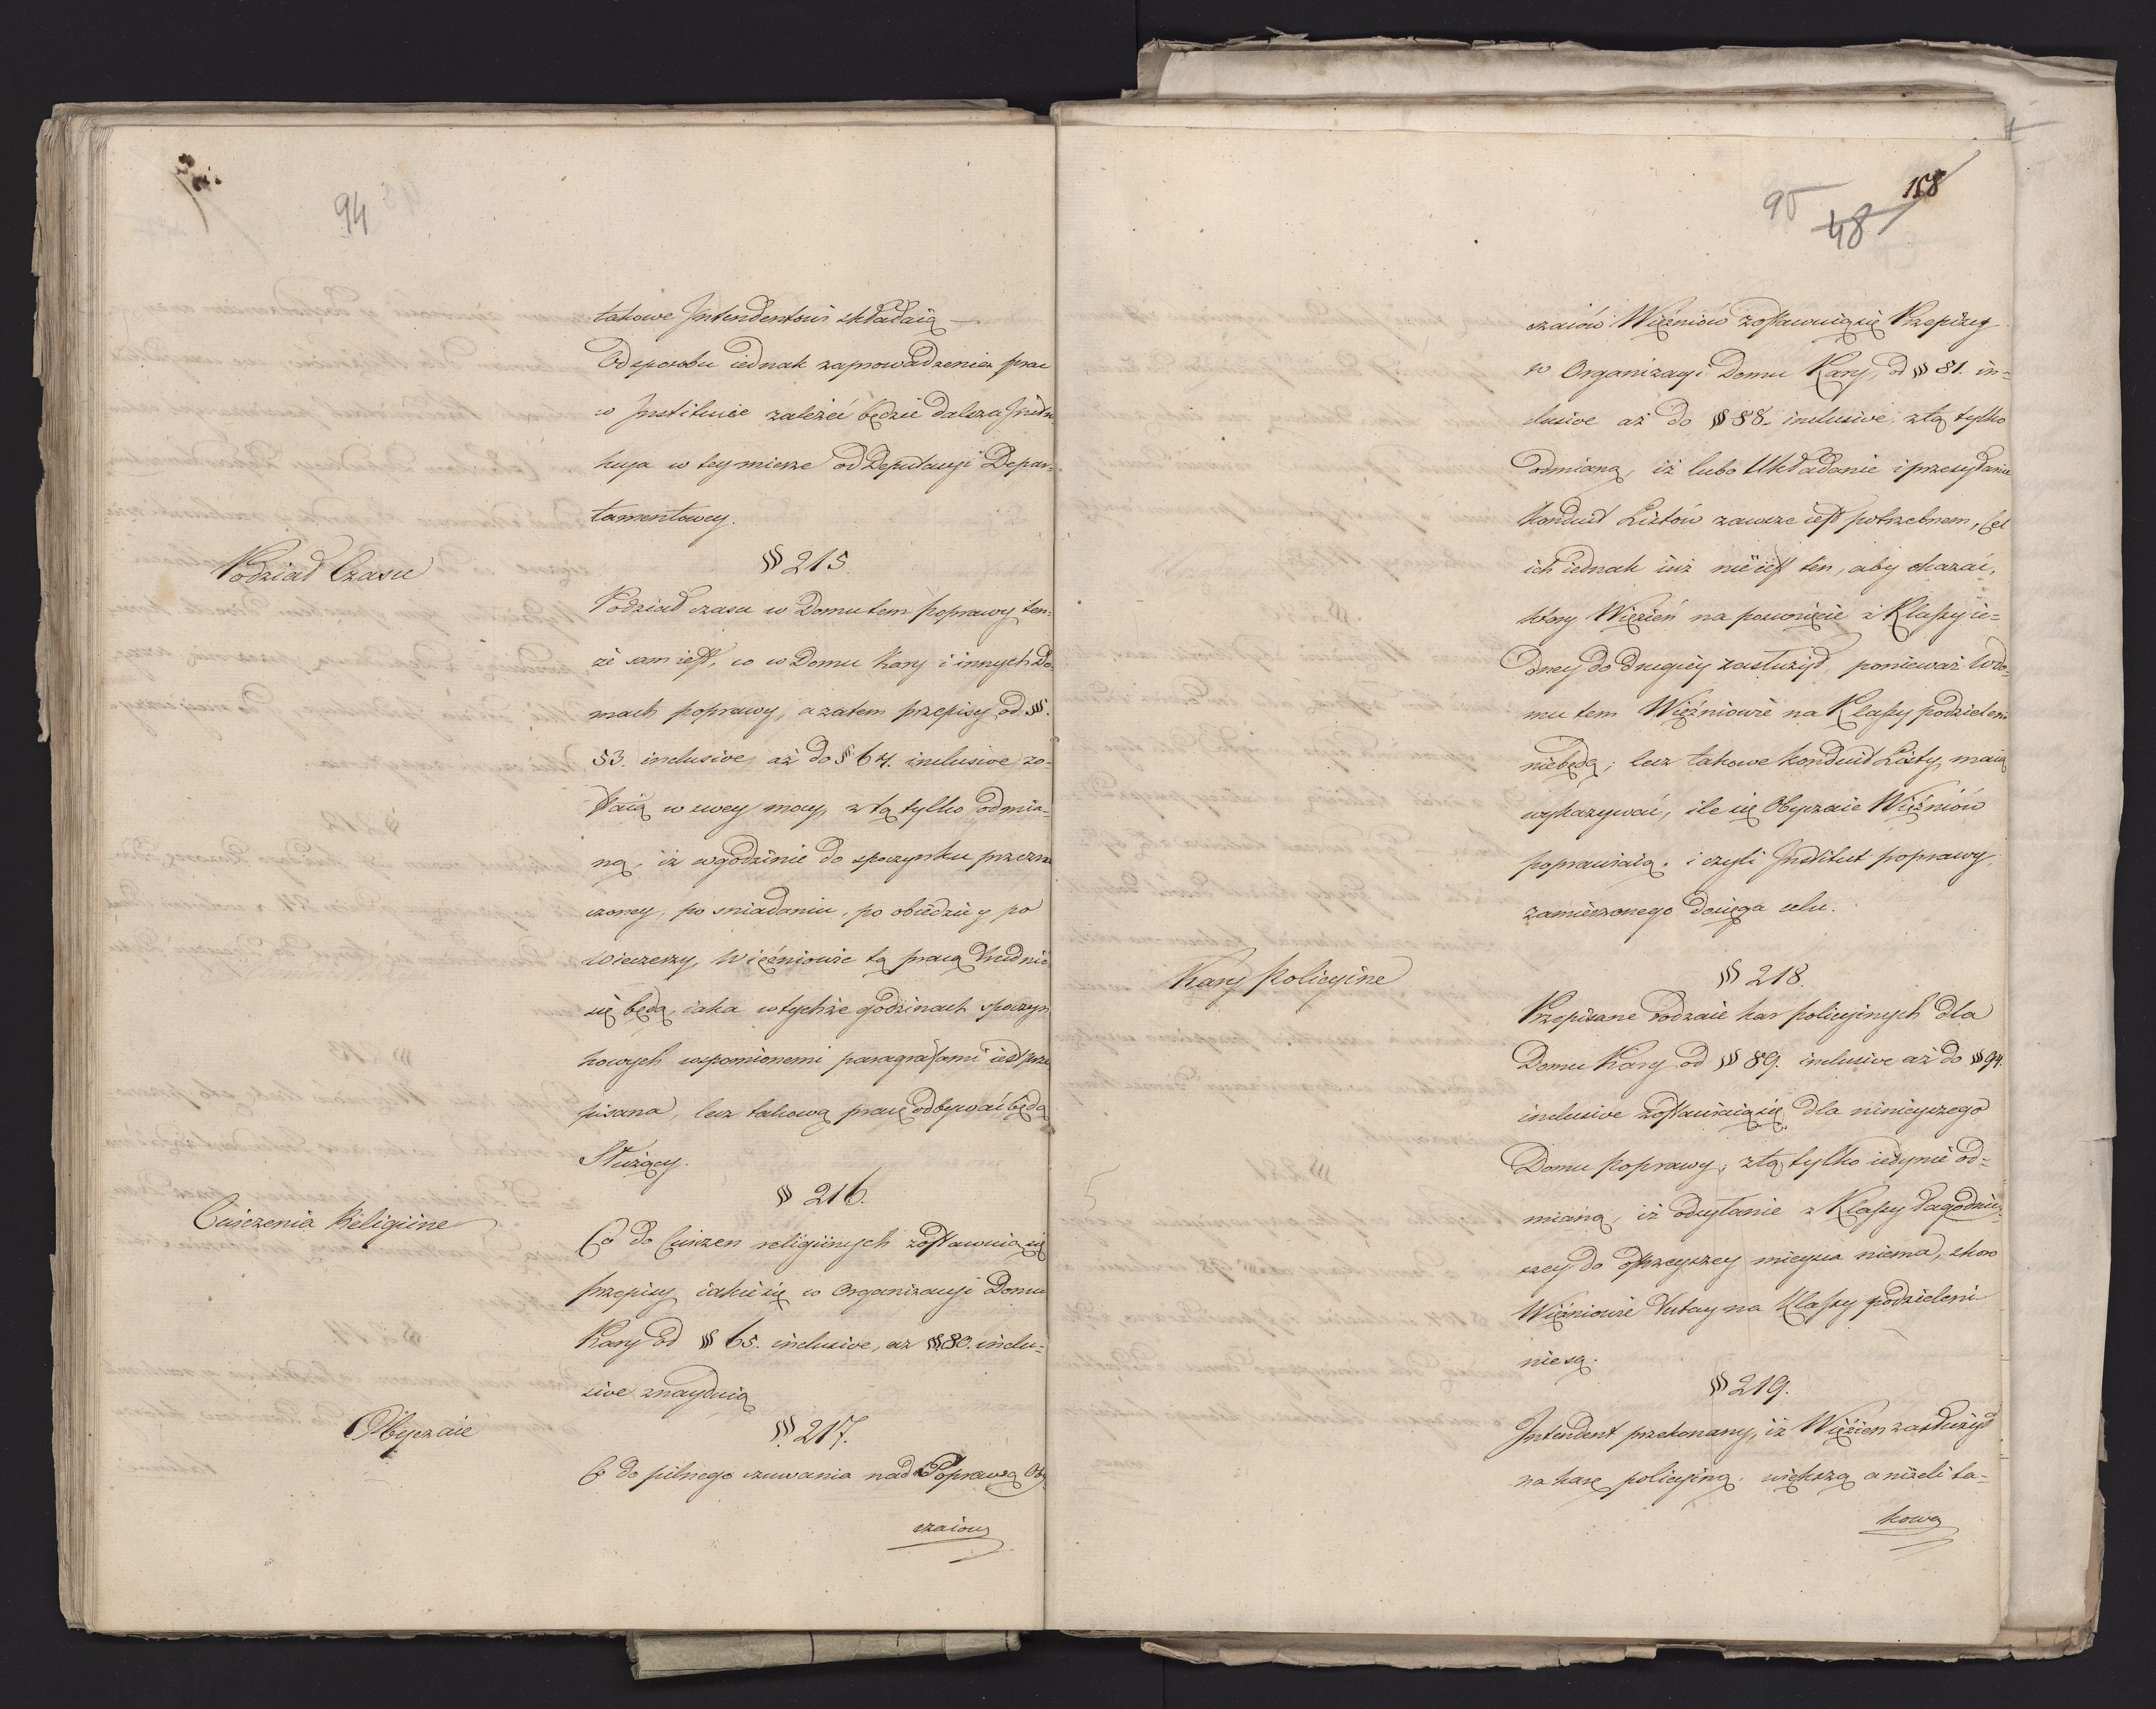 94
takowe Intendentowi składaią —
Od sposobu iednak zaprowadzenia prac
w Institucie zależeć będzie dalsza Instru
kcya w tey mierze od Deputacyi Depar-
tamentowey.
Podział Czasu
§ 215.
Podział czasu w Domu tem poprawy ten-
że sam iest, co w Domu Kary i innych Do-
mach poprawy, a zatem przepisy od §§.
53. inclusive aż do § 64. inclusive zo-
staią w swey mocy, z tą tylko odmia-
ną, iż w godzinie do spoczynku przezna
czoney, po sniadaniu, po obiedzie y po
wieczerzy, Więźniowie tą pracą trudnić
się będą, iaka w tychże godzinach spoczyn
kowych wspomionemi paragrafami iest prze
pisana, lecz takową pracę odbywać będą
Służący.
Cwiczenia Religiine
§ 216.
Co do Cwiczen religiinych zostawuią się
przepisy iakie się w Organizacyi Domu
Kary od § 65. inclusive, az §.80. inclu-
sive znayduią
Obyczaie
§ 217.
Co do pilnego czuwania nad Poprawą Oby-
czaiow
158
95
48
czaiów Więźniów zostawuią się Przepisy
w Organizacyi Domu Kary, od § 81. in-
clusive aż do § 88. inclusive, z tą tylko
odmianą, iż lubo Układanie i przesyłanie
Konduit Listów zawsze iest potrzebnem, Cel
ich iednak iuż nie iest ten, aby okazać,
który Więzień na posunięcie z Klassy ie-
dney do drugiey zasłużył, ponieważ w Do-
mu tem Więźniowie na Klassy podzieleni
niebędą; lecz takowe Konduit Listy maią
wykazywać, ile się Obyczaie Więźniów
poprawiaią, i czyli Institut poprawy
zamierzonego dosięga celu.
Kary Policyine
§ 218.
Przepisane rodzaie kar policyinych dla
Domu Kary od § 89. inclusive aż do § 94.
inclusive zostawiaią się dla ninieyszego
Domu poprawy, z tą tylko iedynie od-
mianą, iż odsyłanie z Klassy łagodniey-
szey do ostrzeyszey mieysca niema, skoro
Więźniowie tutay na Klassy podzieleni
nie są.
§ 219.
Intendent przekonany, iż Więzien zasłużył
na karę policyiną większą aniżeli ta-
kowa